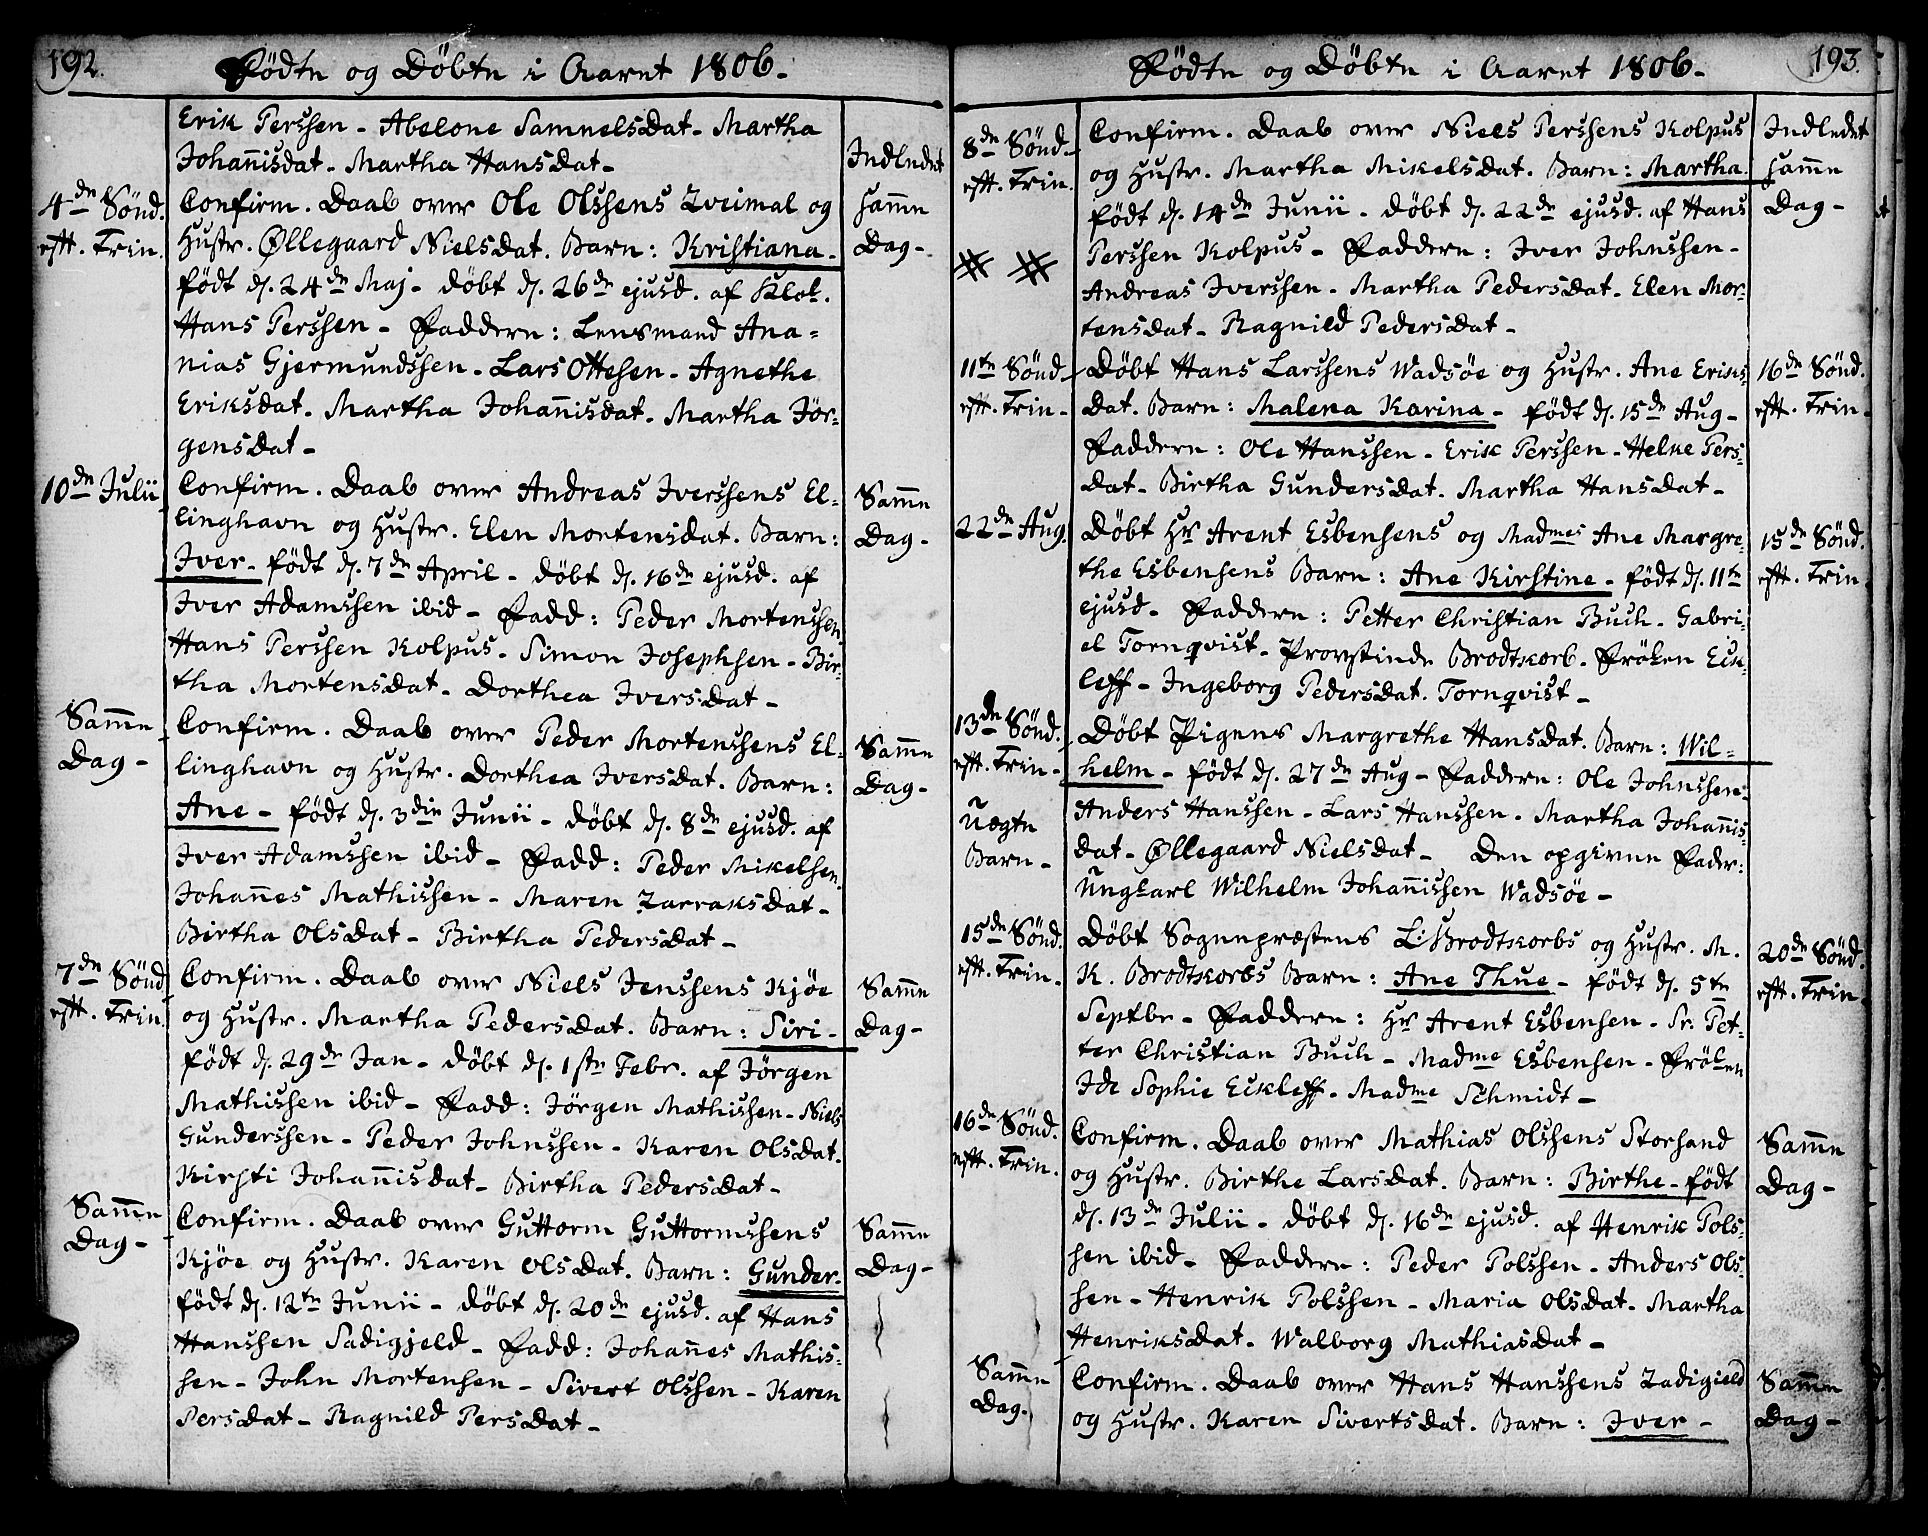 192.
Fødte og Döbte i Aaret 1806.
Erik Perssen - Abelone Samuelsdat. Martha
Johañisdat - Martha Hansdat -
4de Sönd.
eft. Trin.
Confirm. Daab over Ole Olssens Zveimal og
Hustr. Øllegaard Nielsdat. Barn: Kristiana -
født d. 24de Maj - döbt d. 26de ejusd. af Klok.
Hans Perssen - Faddere: Lensmand Ana=
nias Gjermundssen - Lars Ottesen - Agnethe
Eriksdat. Martha Johañisdat. Martha Jör=
gensdat -
Indledet
sam̃e
Dag -
10de Julii
Confirm. Daab over Andreas Iverssens El=
linghavn og Hustr. Elen Mortensdat. Barn:
Iver - født d. 7de April - döbt d. 16de ejusd. af
Iver Adamssen ibid - Fadd: Peder Mortenssen
Hans Perssen Kolpus - Simon Josephsen - Bir=
tha Mortensdat - Dorthea Iversdat -
Sam̃e
Dag -
Sam̃e
Dag -
Confirm. Daab over Peder Mortenssens El=
linghavn og Hustr. Dorthea Iversdat. Barn:
Ane - født d. 3die Junii - döbt d. 8de ejusd. af
Iver Adamssen ibid - Fadd: Peder Mikelsen.
Johañes Mathissen - Maren Zarraksdat -
Birtha Olsdat - Birtha Pedersdat -
Sam̃e
Dag -
7de Sönd
eft. Trin.
Confirm. Daab over Niels Jenssens Kjöe
og Hustr. Martha Pedersdat. Barn: Siri -
født d. 29de Jan - döbt d. 1ste Febr. af Jörgen
Mathissen ibid - Fadd: Jörgen Mathissen - Niels
Gunderssen - Peder Johnssen - Karen Olsdat.
Kirsti Johañisdat - Birtha Pedersdat -
Sam̃e
Dag -
Sam̃e
Dag -
Confirm. Daab over Guttorm Guttormssens
Kjöe og Hustr. Karen Olsdat. Barn: Gunder -
født d. 12te Junii - döbt d. 20de ejusd. af Hans
Hanssen Sadigjeld - Fadd: Johañes Mathis=
sen - John Mortensen - Sivert Olssen - Karen
Persdat - Ragnild Persdat -
Sam̃e
Dag -
193.
Fødte og Döbte i Aaret 1806 -
8de Sönd -
eft. Trin.
Confirm. Daab over Niels Perssens Kolpus
og Hustr. Martha Mikelsdat. Barn: Martha.
født d. 14de Junii - döbt d. 22de ejusd. af Hans
Perssen Kolpus - Faddere: Iver Johnssen -
Andreas Iverssen - Martha Pedersdat - Elen Mor=
tensdat - Ragnild Pedersdat -
Indledet
sam̃e
Dag -
11te Sönd -
eft. Trin -
Döbt Hans Larssens Wadsöe og Hustr. Ane Eriks=
dat. Barn: Malena Karina - født d. 15de Aug -
Faddere: Ole Hanssen - Erik Perssen - Helne Pers=
dat - Birtha Gundersdat. Martha Hansdat -
16de Sönd.
eft. Trin -
22de Aug.
Döbt Hr Arent Esbensens og Madmes Ane Margre=
the Esbensens Barn: Ane Kirstine - født d. 11te
ejusd - Faddere: Petter Christian Buch - Gabri=
el Tornqvist - Provstinde Brodtkorb - Fröken Eck=
leff - Ingeborg Pedersdat. Tornqvist -
15de Sönd.
eft. Trin -
13de Sönd.
eft. Trin -
Uægte
Barn -
Döbt Pigens Margrethe Hansdat. Barn: Wil=
helm - født d. 27de Aug - Faddere: Ole Johnssen -
Anders Hanssen - Lars Hanssen - Martha Johañis=
dat - Øllegaard Nielsdat - Den opgivne Fader:
Ungkarl Wilhelm Johañissen Wadsöe -
15de Sönd.
eft. Trin.
Döbt Sognepræstens L: Brodtkorbs og Hustr. M.
K. Brodtkorbs Barn: Ane Thue - født d. 5te
Septbr - Faddere: Hr Arent Esbensen - Sr: Pet=
ter Christian Buch - Madme Esbensen - Fröken
Ide Sophie Eckleff - Madme Schmidt -
20de Sönd.
eft. Trin -
16de Sönd.
eft. Trin.
Confirm. Daab over Mathias Olssens Storsand
og Hustr. Birthe Larsdat. Barn: Birthe - født
d. 13de Julii - döbt d. 16de ejusd. af Henrik Pols=
sen ibid - Faddere: Peder Polssen - Anders Ols=
sen - Henrik Polssen - Maria Olsdat - Martha
Henriksdat - Walborg Mathiasdat -
Sam̃e
Dag -
Sam̃e
Dag.
Confirm. Daab over Hans Hanssens Zadigield
og Hustr. Karen Sivertsdat. Barn: Iver -
Sam̃e
Dag -